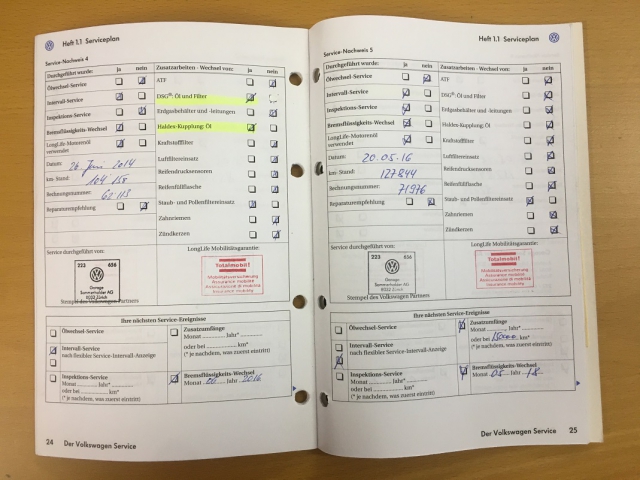 Heft 1.1 Serviceplan
Service-Nachweis 4
Durchgeführt wurde: ja nein
Ölwechsel-Service
Intervall-Service
Inspektions-Service
Bremsflüssigkeits-Wechsel
LongLife-Motorenöl
verwendet
Datum: 26. Juni 2014
km-Stand: 104 158
Rechnungsnummer: 62113
Reparaturempfehlung
Zusatzarbeiten - Wechsel von: ja nein
ATF
DSG®: Öl und Filter
Erdgasbehälter und -leitungen
Haldex-Kupplung: Öl
Kraftstofffilter
Luftfiltereinsatz
Reifendrucksensoren
Reifenfüllflasche
Staub- und Pollenfiltereinsatz
Zahnriemen
Zündkerzen
Service durchgeführt von:
223 656
Garage
Sommerhalder AG
8022 Zürich
Stempel des Volkswagen Partners
LongLife Mobilitätsgarantie:
Totalmobil!
Mobilitätsversicherung
Assurance mobilité
Assicurazione di mobilità
insurance of mobility
Ihre nächsten Service-Ereignisse
Ölwechsel-Service
Intervall-Service
nach flexibler Service-Intervall-Anzeige
Inspektions-Service
Monat Jahr*
oder bei km*
(* je nachdem, was zuerst eintritt)
Zusatzumfänge
Monat Jahr*
oder bei km*
(* je nachdem, was zuerst eintritt)
Bremsflüssigkeits-Wechsel
Monat 06 Jahr 2016
24 Der Volkswagen Service
Heft 1.1 Serviceplan
Service-Nachweis 5
Durchgeführt wurde: ja nein
Ölwechsel-Service
Intervall-Service
Inspektions-Service
Bremsflüssigkeits-Wechsel
LongLife-Motorenöl
verwendet
Datum: 20.05.16
km-Stand: 127844
Rechnungsnummer: 71976
Reparaturempfehlung
Zusatzarbeiten - Wechsel von: ja nein
ATF
DSG®: Öl und Filter
Erdgasbehälter und -leitungen
Haldex-Kupplung: Öl
Kraftstofffilter
Luftfiltereinsatz
Reifendrucksensoren
Reifenfüllflasche
Staub- und Pollenfiltereinsatz
Zahnriemen
Zündkerzen
Service durchgeführt von:
223 656
Garage
Sommerhalder AG
8022 Zürich
Stempel des Volkswagen Partners
LongLife Mobilitätsgarantie:
Totalmobil!
Mobilitätsversicherung
Assurance mobilité
Assicurazione di mobilità
insurance of mobility
Ihre nächsten Service-Ereignisse
Ölwechsel-Service
Intervall-Service
nach flexibler Service-Intervall-Anzeige
Inspektions-Service
Monat Jahr*
oder bei km*
(* je nachdem, was zuerst eintritt)
Zusatzumfänge
Monat Jahr*
oder bei 150000 km*
(* je nachdem, was zuerst eintritt)
Bremsflüssigkeits-Wechsel
Monat 05 Jahr 18
Der Volkswagen Service 25